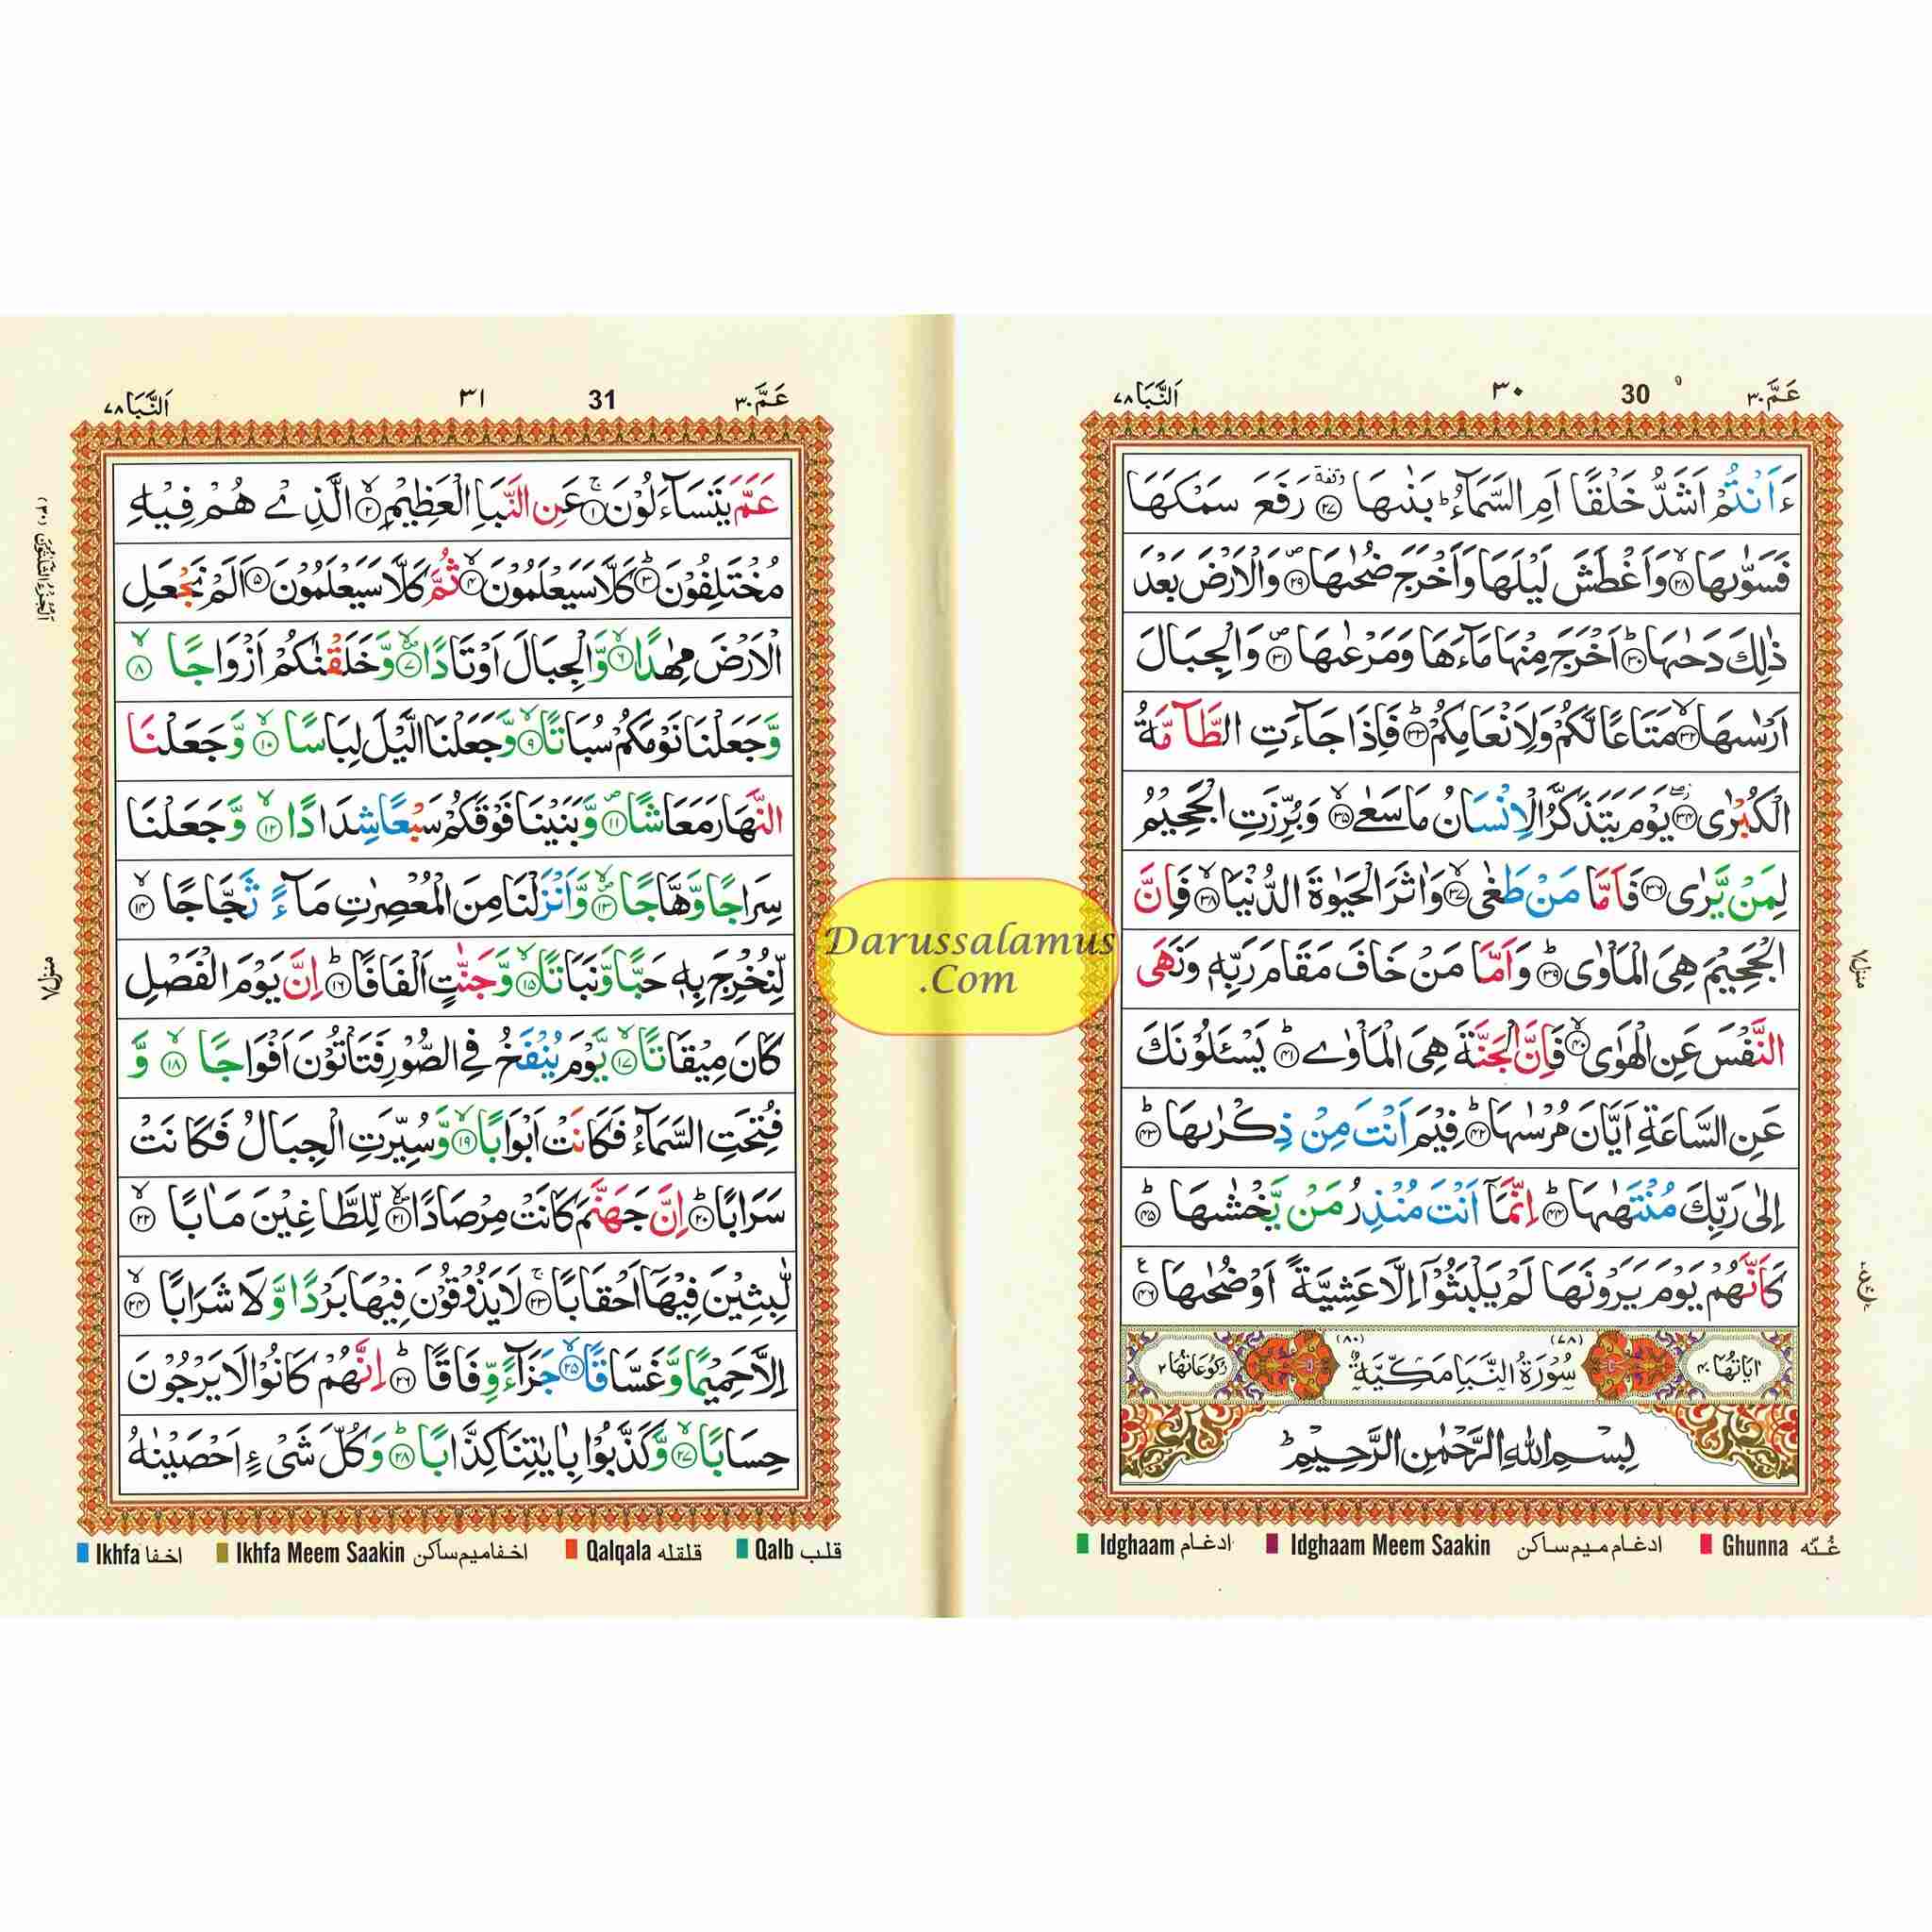 اَلنَّبَا ٧٨ ٣٠ 30 عَمَّ ٣٠
ءَاَنْتُمْ اَشَدُّ خَلْقًا اَمِ السَّمَآءُ ؕ بَنٰىهَا ﴿٢٧﴾ وقفة رَفَعَ سَمْكَهَا
فَسَوّٰىهَا ﴿٢٨﴾ۙ وَاَغْطَشَ لَيْلَهَا وَاَخْرَجَ ضُحٰىهَا ﴿٢٩﴾۪ وَالْاَرْضَ بَعْدَ
ذٰلِكَ دَحٰىهَا ﴿٣٠﴾ؕ اَخْرَجَ مِنْهَا مَآءَهَا وَمَرْعٰىهَا ﴿٣١﴾۪ وَالْجِبَالَ
اَرْسٰىهَا ﴿٣٢﴾ۙ مَتَاعًا لَّكُمْ وَلِاَنْعَامِكُمْ ﴿٣٣﴾ؕ فَاِذَا جَآءَتِ الطَّآمَّةُ
الْكُبْرٰى ﴿٣٤﴾ؗ يَوْمَ يَتَذَكَّرُ الْاِنْسَانُ مَا سَعٰى ﴿٣٥﴾ۙ وَبُرِّزَتِ الْجَحِيْمُ
لِمَنْ يَّرٰى ﴿٣٦﴾ فَاَمَّا مَنْ طَغٰى ﴿٣٧﴾ۙ وَاٰثَرَ الْحَيٰوةَ الدُّنْيَا ﴿٣٨﴾ۙ فَاِنَّ
الْجَحِيْمَ هِىَ الْمَاْوٰى ﴿٣٩﴾ؕ وَاَمَّا مَنْ خَافَ مَقَامَ رَبِّهٖ وَنَهَى
النَّفْسَ عَنِ الْهَوٰى ﴿٤٠﴾ۙ فَاِنَّ الْجَنَّةَ هِىَ الْمَاْوٰے ﴿٤١﴾ؕ يَسْـَٔلُوْنَكَ
عَنِ السَّاعَةِ اَيَّانَ مُرْسٰىهَا ﴿٤٢﴾ؕ فِيْمَ اَنْتَ مِنْ ذِكْرٰىهَا ﴿٤٣﴾ؕ
اِلٰى رَبِّكَ مُنْتَهٰىهَا ﴿٤٤﴾ؕ اِنَّمَآ اَنْتَ مُنْذِرُ مَنْ يَّخْشٰىهَا ﴿٤٥﴾ؕ
كَاَنَّهُمْ يَوْمَ يَرَوْنَهَا لَمْ يَلْبَثُوْٓا اِلَّا عَشِيَّةً اَوْ ضُحٰىهَا ﴿٤٦﴾
اٰيَاتُهَا ٤٠ (٧٨) سُوْرَةُ النَّبَاِ مَكِّيَّةٌ (٨٠) رُكُوْعَاتُهَا ٢
بِسْمِ اللّٰهِ الرَّحْمٰنِ الرَّحِيْمِ
منزل ٧
Idghaam ادغام Idghaam Meem Saakin ادغام میم ساکن Ghunna غُنّه
اَلنَّبَا ٧٨ ٣١ 31 عَمَّ ٣٠
عَمَّ يَتَسَآءَلُوْنَ ﴿١﴾ۚ عَنِ النَّبَاِ الْعَظِيْمِ ﴿٢﴾ۙ الَّذِىْ هُمْ فِيْهِ
مُخْتَلِفُوْنَ ﴿٣﴾ؕ كَلَّا سَيَعْلَمُوْنَ ﴿٤﴾ۙ ثُمَّ كَلَّا سَيَعْلَمُوْنَ ﴿٥﴾ اَلَمْ نَجْعَلِ
الْاَرْضَ مِهٰدًا ﴿٦﴾ۙ وَّالْجِبَالَ اَوْتَادًا ﴿٧﴾ وَّخَلَقْنٰكُمْ اَزْوَاجًا ﴿٨﴾ۙ
وَّجَعَلْنَا نَوْمَكُمْ سُبَاتًا ﴿٩﴾ۙ وَّجَعَلْنَا الَّيْلَ لِبَاسًا ﴿١٠﴾ۙ وَّجَعَلْنَا
النَّهَارَ مَعَاشًا ﴿١١﴾۪ وَّبَنَيْنَا فَوْقَكُمْ سَبْعًا شِدَادًا ﴿١٢﴾ۙ وَّجَعَلْنَا
سِرَاجًا وَّهَّاجًا ﴿١٣﴾ وَّاَنْزَلْنَا مِنَ الْمُعْصِرٰتِ مَآءً ثَجَّاجًا ﴿١٤﴾ۙ
لِّنُخْرِجَ بِهٖ حَبًّا وَّنَبَاتًا ﴿١٥﴾ۙ وَّجَنّٰتٍ اَلْفَافًا ﴿١٦﴾ؕ اِنَّ يَوْمَ الْفَصْلِ
كَانَ مِيْقَاتًا ﴿١٧﴾ۙ يَّوْمَ يُنْفَخُ فِى الصُّوْرِ فَتَاْتُوْنَ اَفْوَاجًا ﴿١٨﴾ۙ وَّ
فُتِحَتِ السَّمَآءُ فَكَانَتْ اَبْوَابًا ﴿١٩﴾ۙ وَّسُيِّرَتِ الْجِبَالُ فَكَانَتْ
سَرَابًا ﴿٢٠﴾ؕ اِنَّ جَهَنَّمَ كَانَتْ مِرْصَادًا ﴿٢١﴾ لِّلطَّاغِيْنَ مَاٰبًا ﴿٢٢﴾ۙ
لّٰبِثِيْنَ فِيْهَآ اَحْقَابًا ﴿٢٣﴾ۚ لَا يَذُوْقُوْنَ فِيْهَا بَرْدًا وَّلَا شَرَابًا ﴿٢٤﴾ۙ
اِلَّا حَمِيْمًا وَّغَسَّاقًا ﴿٢٥﴾ۙ جَزَآءً وِّفَاقًا ﴿٢٦﴾ؕ اِنَّهُمْ كَانُوْا لَا يَرْجُوْنَ
حِسَابًا ﴿٢٧﴾ۙ وَّكَذَّبُوْا بِاٰيٰتِنَا كِذَّابًا ﴿٢٨﴾ؕ وَكُلَّ شَىْءٍ اَحْصَيْنٰهُ
اَلْجُزْءُ الثَّلٰثُوْنَ (٣٠)
منزل ٧
Ikhfa اخفا Ikhfa Meem Saakin اخفا میم ساکن Qalqala قلقله Qalb قلب
Darussalamus
.Com